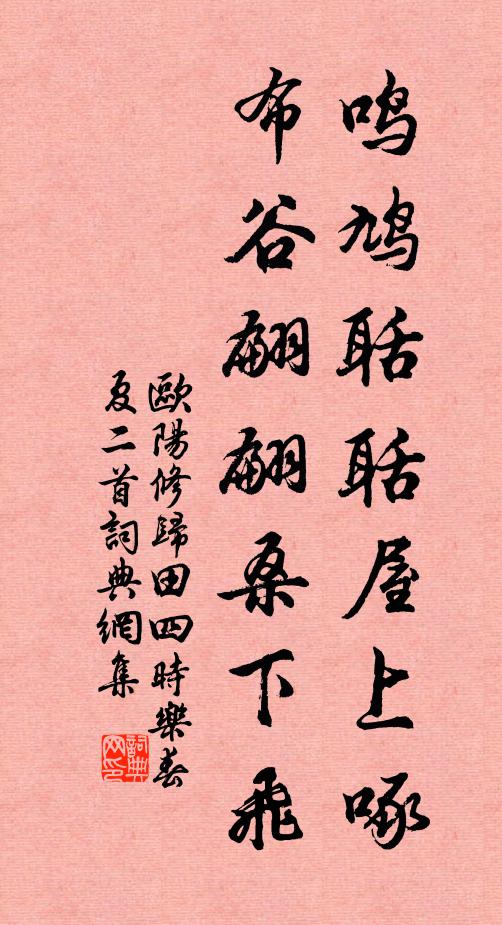 鸣鸠聒聒屋上啄
布谷翩翩桑下飛
歐陽修歸田四時樂春
夏二首詞典網集
詞典
网印